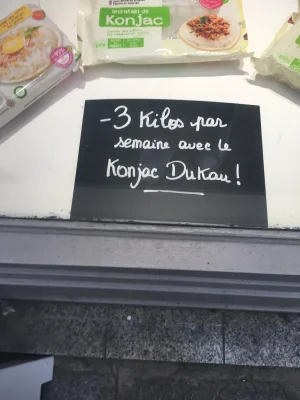 Shirataki de
Konjac
-3 Kilos par
semaine avec le
Konjac Dukan!